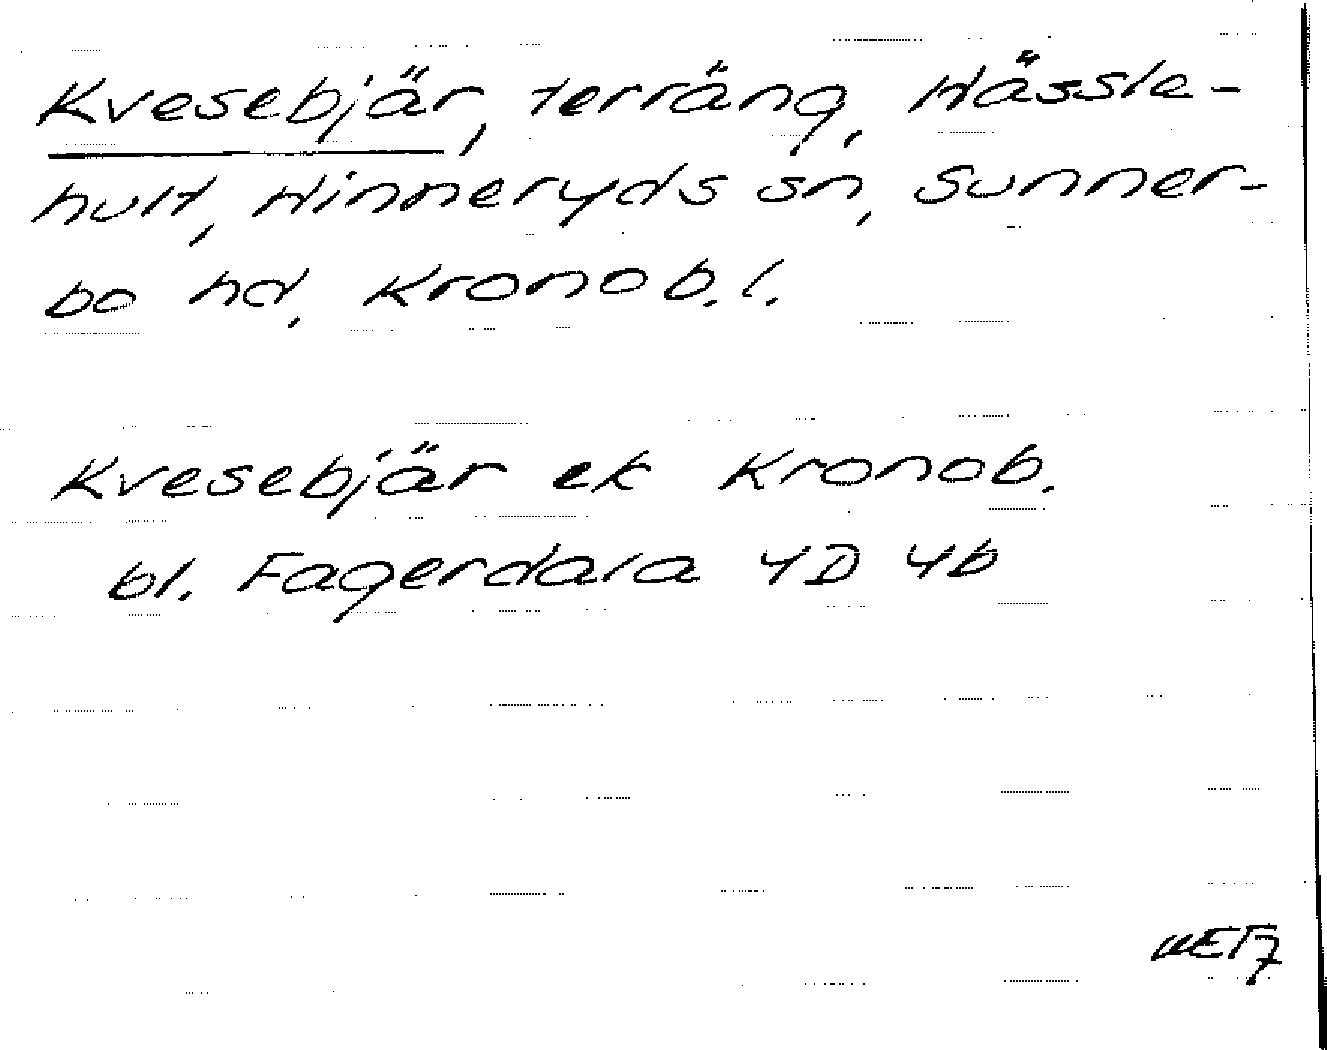 Kvesebjär, terräng, Hässle-
hult, Hinneryds sn, Sunner-
bo hd, Kronob. l.
Kvesebjär ek Kronob.
bl. Fagerdala 4D 4b